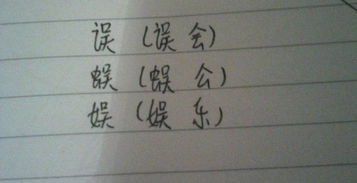 误 (误会)
蜈 (蜈公)
娱 (娱乐)